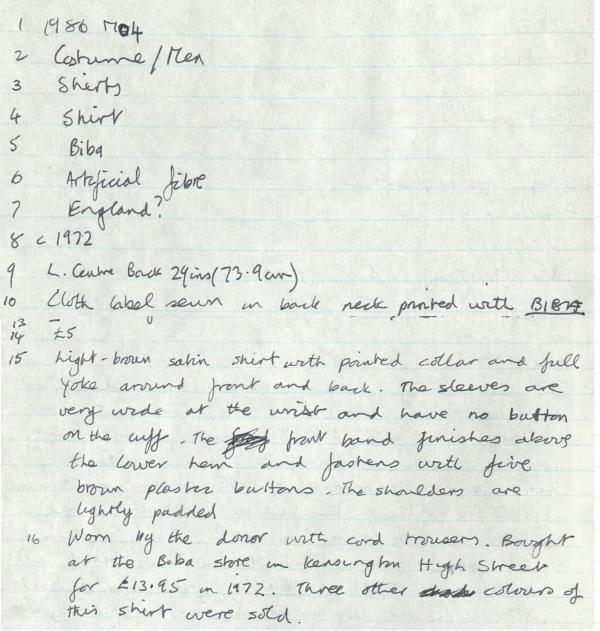 1 1986 M04
2 Costume/Men
3 Shirts
4 Shirt
5 Biba
6 Artificial fibre
7 England?
8 c 1972
9 L. Centre Back 29ins (73.9cm)
10 Cloth label sewn in back neck printed with BIBA
13 –
14 £5
15 Light-brown satin shirt with pointed collar and full
yoke around front and back. The sleeves are
very wide at the wrist and have no button
on the cuff. The front band finishes above
the lower hem and fastens with five
brown plastic buttons. The shoulders are
lightly padded
16 Worn by the donor with cord trousers. Bought
at the Biba store in Kensington High Street
for £13.95 in 1972. Three other colours of
this shirt were sold.